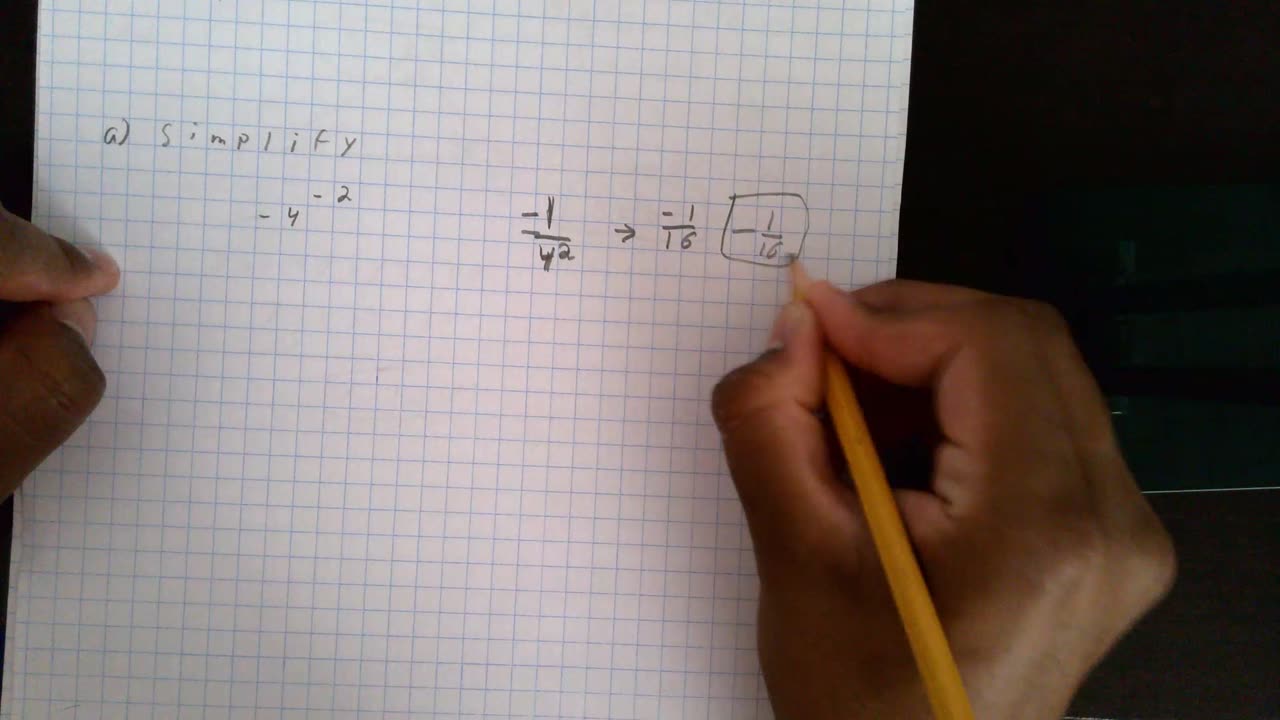 a) Simplify
-4^-2
-1/4^2 → -1/16 -1/16